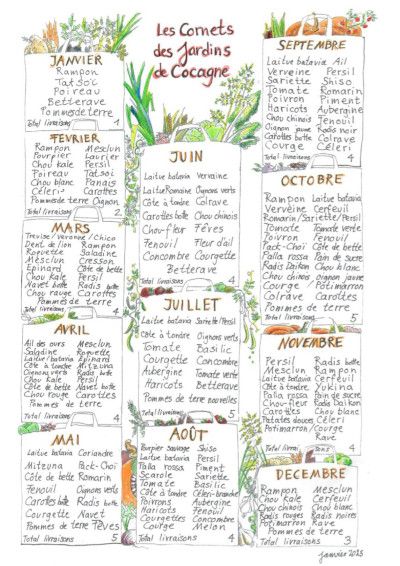 Les Cornets
des Jardins
de Cocagne
JANVIER
Rampon
Tatsoï
Poireau
Betterave
Pommes de terre
Total livraisons 1
FÉVRIER
Rampon Mesclun
Pourpier Laurier
Chou kale Persil
Poireau Tatsoi
Chou blanc Panais
Céleri Carottes
Pommes de terre Oignon
Total livraisons 2
MARS
Trevise/Verone/Chico
Dent de lion Rampon
Roquette Saladine
Mesclun Cresson
Epinard Côte de bette
Chou Kale Persil
Navet botte Radis botte
Chou rouge Carottes
Pommes de terre
Total livraisons 4
AVRIL
Ail des ours Mesclun
Saladine Roquette
Laitue/batavia Epinard
Côte à tondre Mitzuna
Oignons verts Radis botte
Chou Kale Persil
Côte de bette Navet botte
Chou rouge Carottes
Pommes de terre
Total livraisons 4
MAI
Laitue batavia Coriandre
Mitzuna Pack-Choï
Côte de bette Romarin
Fenouil Oignons verts
Carottes botte Radis botte
Courgette Navet
Pommes de terre Fèves
Total livraisons 5
JUIN
Laitue batavia Verveine
Laitue Romaine Oignons verts
Côte à tondre Colrave
Carottes botte Chou chinois
Chou-fleur Fèves
Fenouil Fleur d'ail
Concombre Courgette
Betterave
JUILLET
Laitue batavia Sariette/Persil
Côte à tondre Oignons verts
Tomate Basilic
Courgette Concombre
Aubergine Tomate verte
Haricots Betterave
Pommes de terre nouvelles
Total livraisons 5
AOÛT
Pourpier Sauvage Shiso
Laitue batavia Persil
Palla rossa Piment
Scarole Sariette
Tomate Basilic
Côte à tondre Céleri-branche
Poivrons Aubergine
Haricots Fenouil
Courgettes Concombre
Courge Melon
Pommes de terre Oignon
Total livraisons 4
SEPTEMBRE
Laitue batavia Ail
Verveine Persil
Sariette Shiso
Tomate Romarin
Poivron Piment
Haricots Aubergine
Chou chinois Fenouil
Oignon jaune Radis noir
Carottes botte Colrave
Courge Céleri
Total livraisons 4
OCTOBRE
Rampon Laitue batavia
Verveine Cerfeuil
Romarin/Sariette/Persil
Tomate Tomate verte
Poivron Fenouil
Pack-Choï Côte de bette
Palla rossa Pain de sucre
Radis Daikon Chou blanc
Chou chinois Oignon jaune
Courge Potimarron
Colrave Carottes
Pommes de terre
Total livraisons 5
NOVEMBRE
Persil Radis botte
Mesclun Rampon
Laitue batavia Cerfeuil
Côte de bette Yukina
Palla rossa Pain de sucre
Chou-fleur Radis Daikon
Carottes Chou blanc
Patates douces Céleri
Potimarron/Courge
Rave
Total livraisons
DECEMBRE
Rampon Mesclun
Chou Kale Cerfeuil
Chou chinois Chou blanc
Radis rouges Radis noires
Potimarron Rave
Pommes de terre
Total livraisons 3
janvier 2025